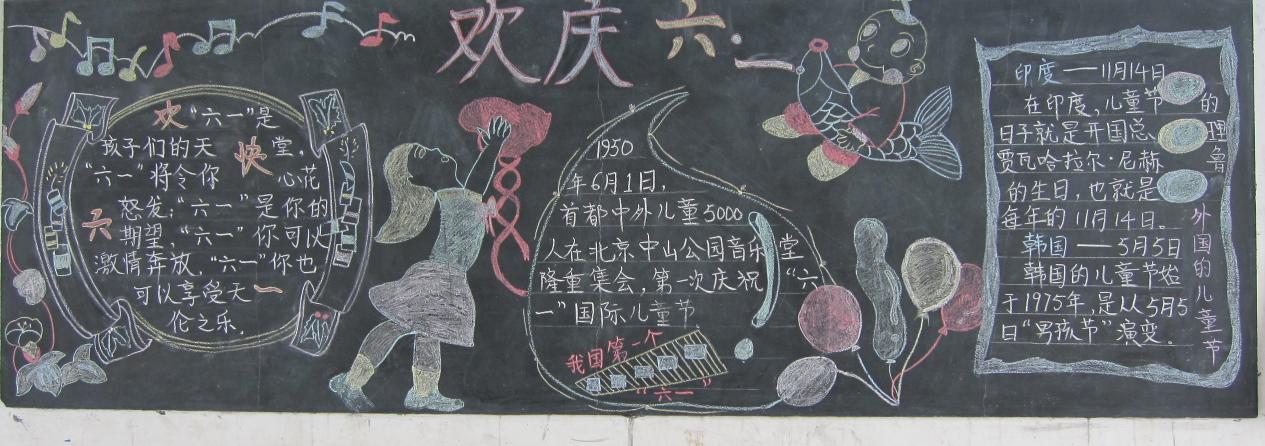 欢庆六·一
欢“六一”是
孩子们的天快堂，
“六一”将令你心花
怒发；“六一”是你的
六期望，“六一”你可以
激情奔放，“六一”你也
可以享受天一
伦之乐。
1950
年6月1日，
首都中外儿童5000
人在北京中山公园音乐堂
隆重集会，第一次庆祝“六
一”国际儿童节
我国第一个
“六一”
印度——11月14日
在印度，儿童节的
日子就是开国总理
贾瓦哈拉尔·尼赫鲁
的生日，也就是
每年的11月14日。
韩国——5月5日
韩国的儿童节始
于1975年，是从5月5
日“男孩节”演变。
外国的儿童节